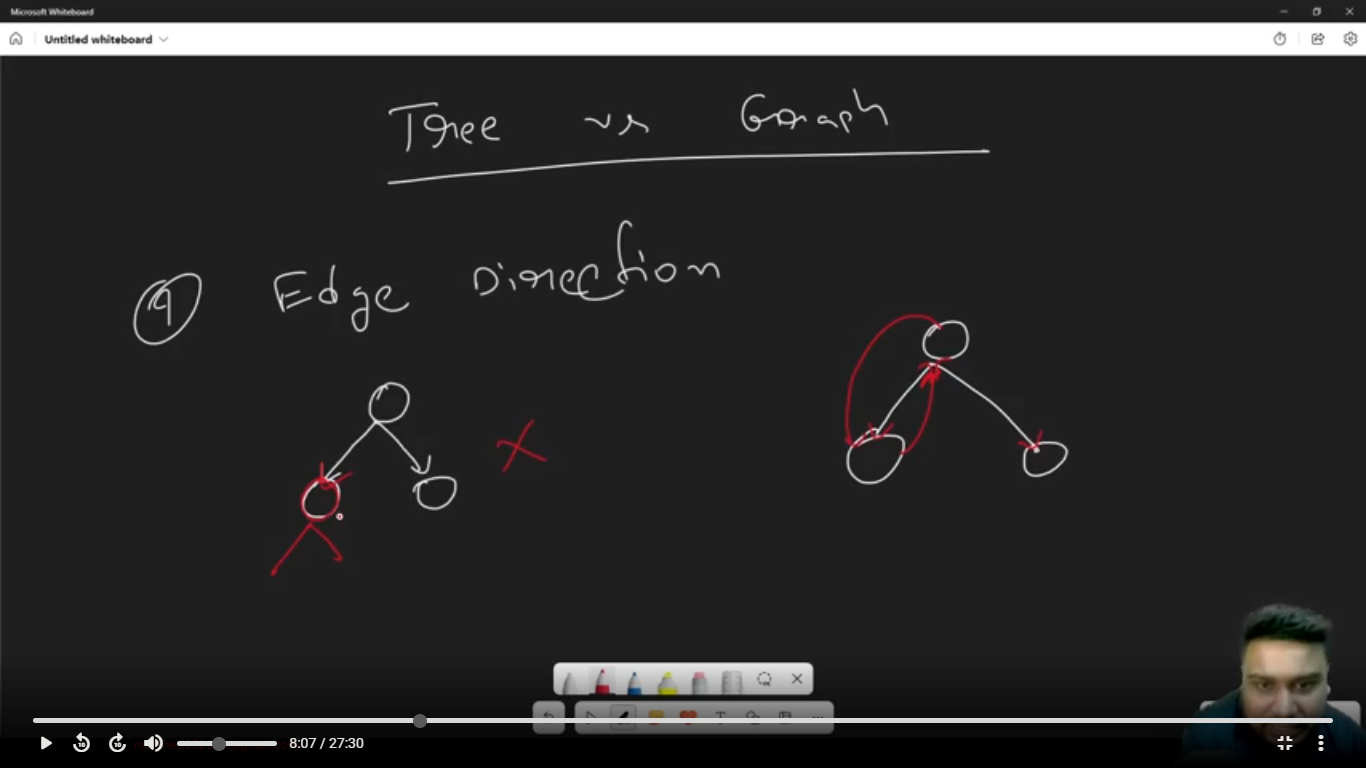 Microsoft Whiteboard
Untitled whiteboard
Tree vs Graph
Edge Direction
10
10
8:07 / 27:30